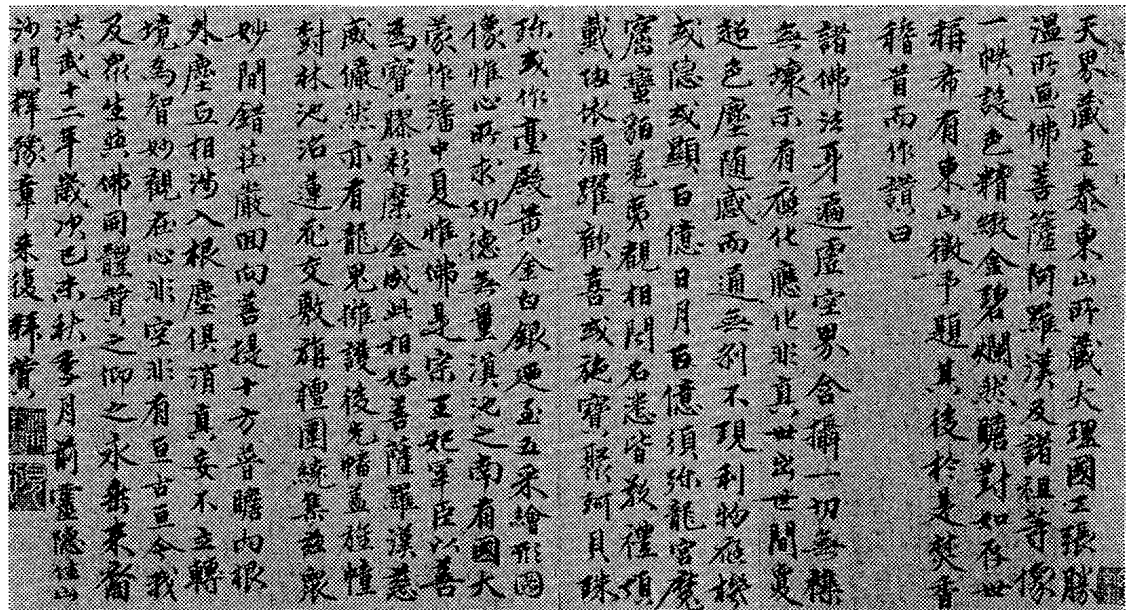 天界藏主泰東山所藏大理國王張勝
溫所畫佛菩薩阿羅漢及諸祖等像
一帙設色精緻金碧爛然瞻對如存世
稱希有東山徵予題其後於是焚香
稽首而作讚曰
諸佛法身遍虛空界含攝一切無礙
無壞示有應化應化非真世出世間敻
超色塵隨感而通無剎不現利物應機
或隱或顯百億日月百億須弥龍宮魔
窟蠻貊羌夷觀相聞名悉皆敬禮頂
戴依涌躍歡喜或施寶聚珂貝珠
珎或作臺殿黃金白銀廼至五采繪形圖
像惟心所求功德無量滇池之南有國大
蒙作藩中夏惟佛是宗王妃宰臣以善
為寶膠彩縻金成此相好菩薩羅漢慈
威儼然亦有龍鬼擁護後先幡蓋旌幢
對林池沼蓮花交敷旃檀圍繞集茲眾
妙間錯莊嚴回向菩提十方普瞻內根
外塵互相涉入根塵俱消真妄不立轉
境為智妙觀在心非空非有亘古亘今我
及眾生與佛同體贊之仰之永垂來裔
洪武十二年歲次己未秋季月前靈隱住山
沙門釋豫章來復拜贊